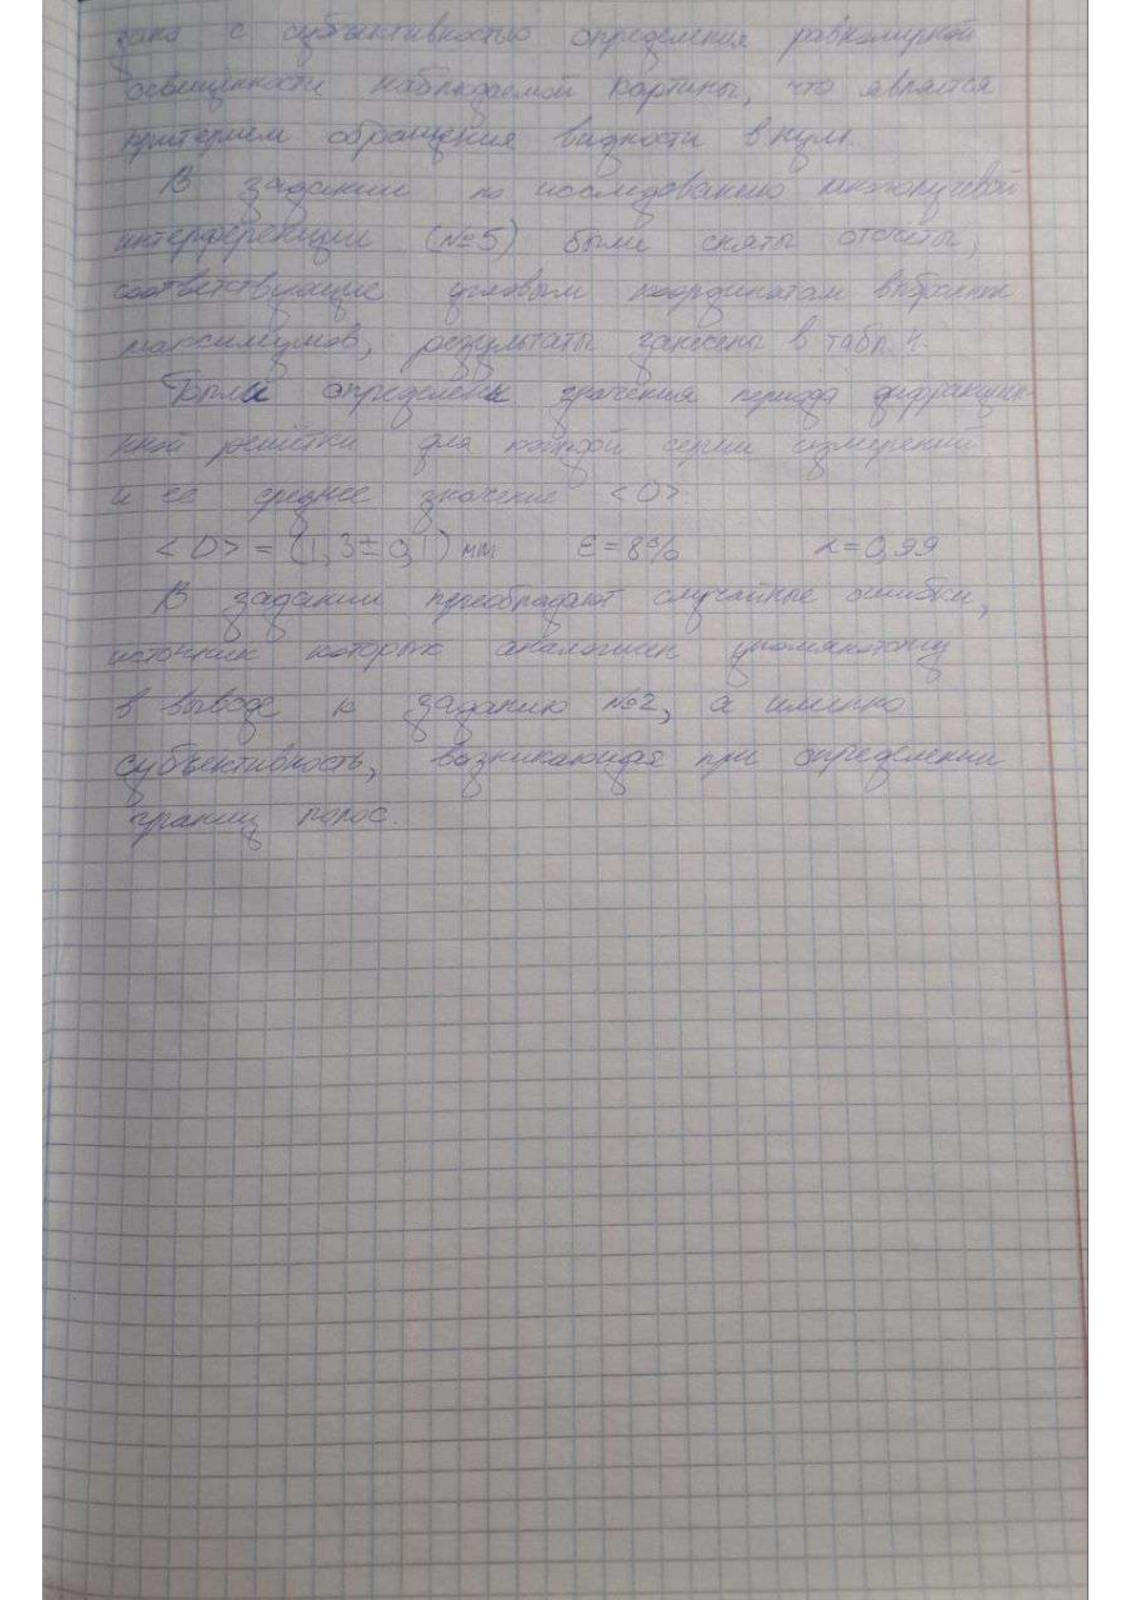 зана с субъективностью определения равномерной
освещённости наблюдаемой картины, что является
критерием обращения видности в нуль.
В задании по исследованию многолучевой
интерференции (№5) были сняты отсчёты,
соответствующие угловым координатам выбранных
максимумов, результаты занесены в табл. 4.
Были определены значения периода дифракцион-
ной решётки для каждой серии измерений
и её среднее значение <D>.
<D> = (1,3±0,1) мм ε=8% α=0,99
В задании преобладают случайные ошибки,
источник которых аналогичен упомянутому
в выводе к заданию №2, а именно
субъективность, возникающая при определении
границ полос.